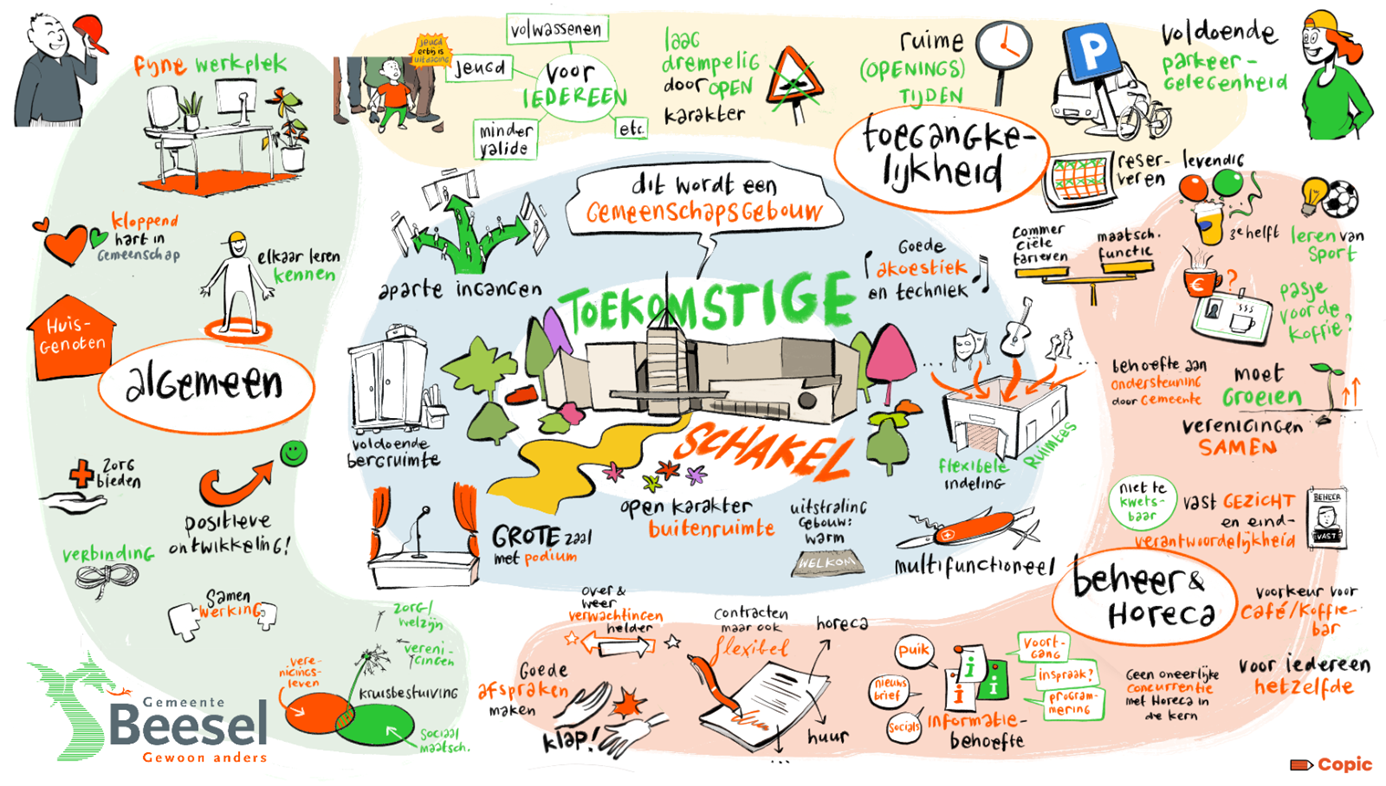 fijne werkplek
kloppend
hart in
Gemeenschap
elkaar leren
kennen
Huis-
Genoten
algemeen
zorg
bieden
positieve
ontwikkeling!
verbinding
Samen
werking
zorg/
welzijn
vereni-
gingen
vere-
nigings-
leven
kruisbestuiving
Sociaal
maatsch.
Gemeente
Beesel
Gewoon anders
jeugd
erbij is
uitdaging
volwassenen
jeugd
voor
IEDEREEN
minder
valide
etc.
laag
drempelig
door OPEN
karakter
ruime
(OPENINGS)
TIJDEN
P
voldoende
parkeer-
gelegenheid
toegangke-
lijkheid
reser-
veren
dit wordt een
Gemeenschapsgebouw
aparte ingangen
TOEKOMSTIGE
SCHAKEL
Goede
akoestiek
en techniek
voldoende
bergruimte
GROTE zaal
met podium
open karakter
buitenruimte
uitstraling
gebouw:
warm
WELKOM
flexibele
indeling
Ruimtes
multifunctioneel
levendig
3e helft
leren van
Sport
Commer
ciële
tarieven
maatsch.
functie
€
?
pasje
voor de
koffie?
behoefte aan
ondersteuning
door Gemeente
moet
Groeien
verenigingen
SAMEN
niet te
kwets-
baar
vast GEZICHT
en eind-
verantwoordelijkheid
BEHEER
VAST
beheer &
Horeca
voorkeur voor
Café/Koffie-
bar
voor iedereen
hetzelfde
Geen oneerlijke
concurrentie
met Horeca in
de kern
over &
weer
verwachtingen
helder
Goede
afspraken
maken
klap!
contracten
maar ook
flexibel
horeca
huur
...
puik
nieuws
brief
Socials
i
i
i
voort-
gang
inspraak?
program-
mering
informatie-
behoefte
Copic